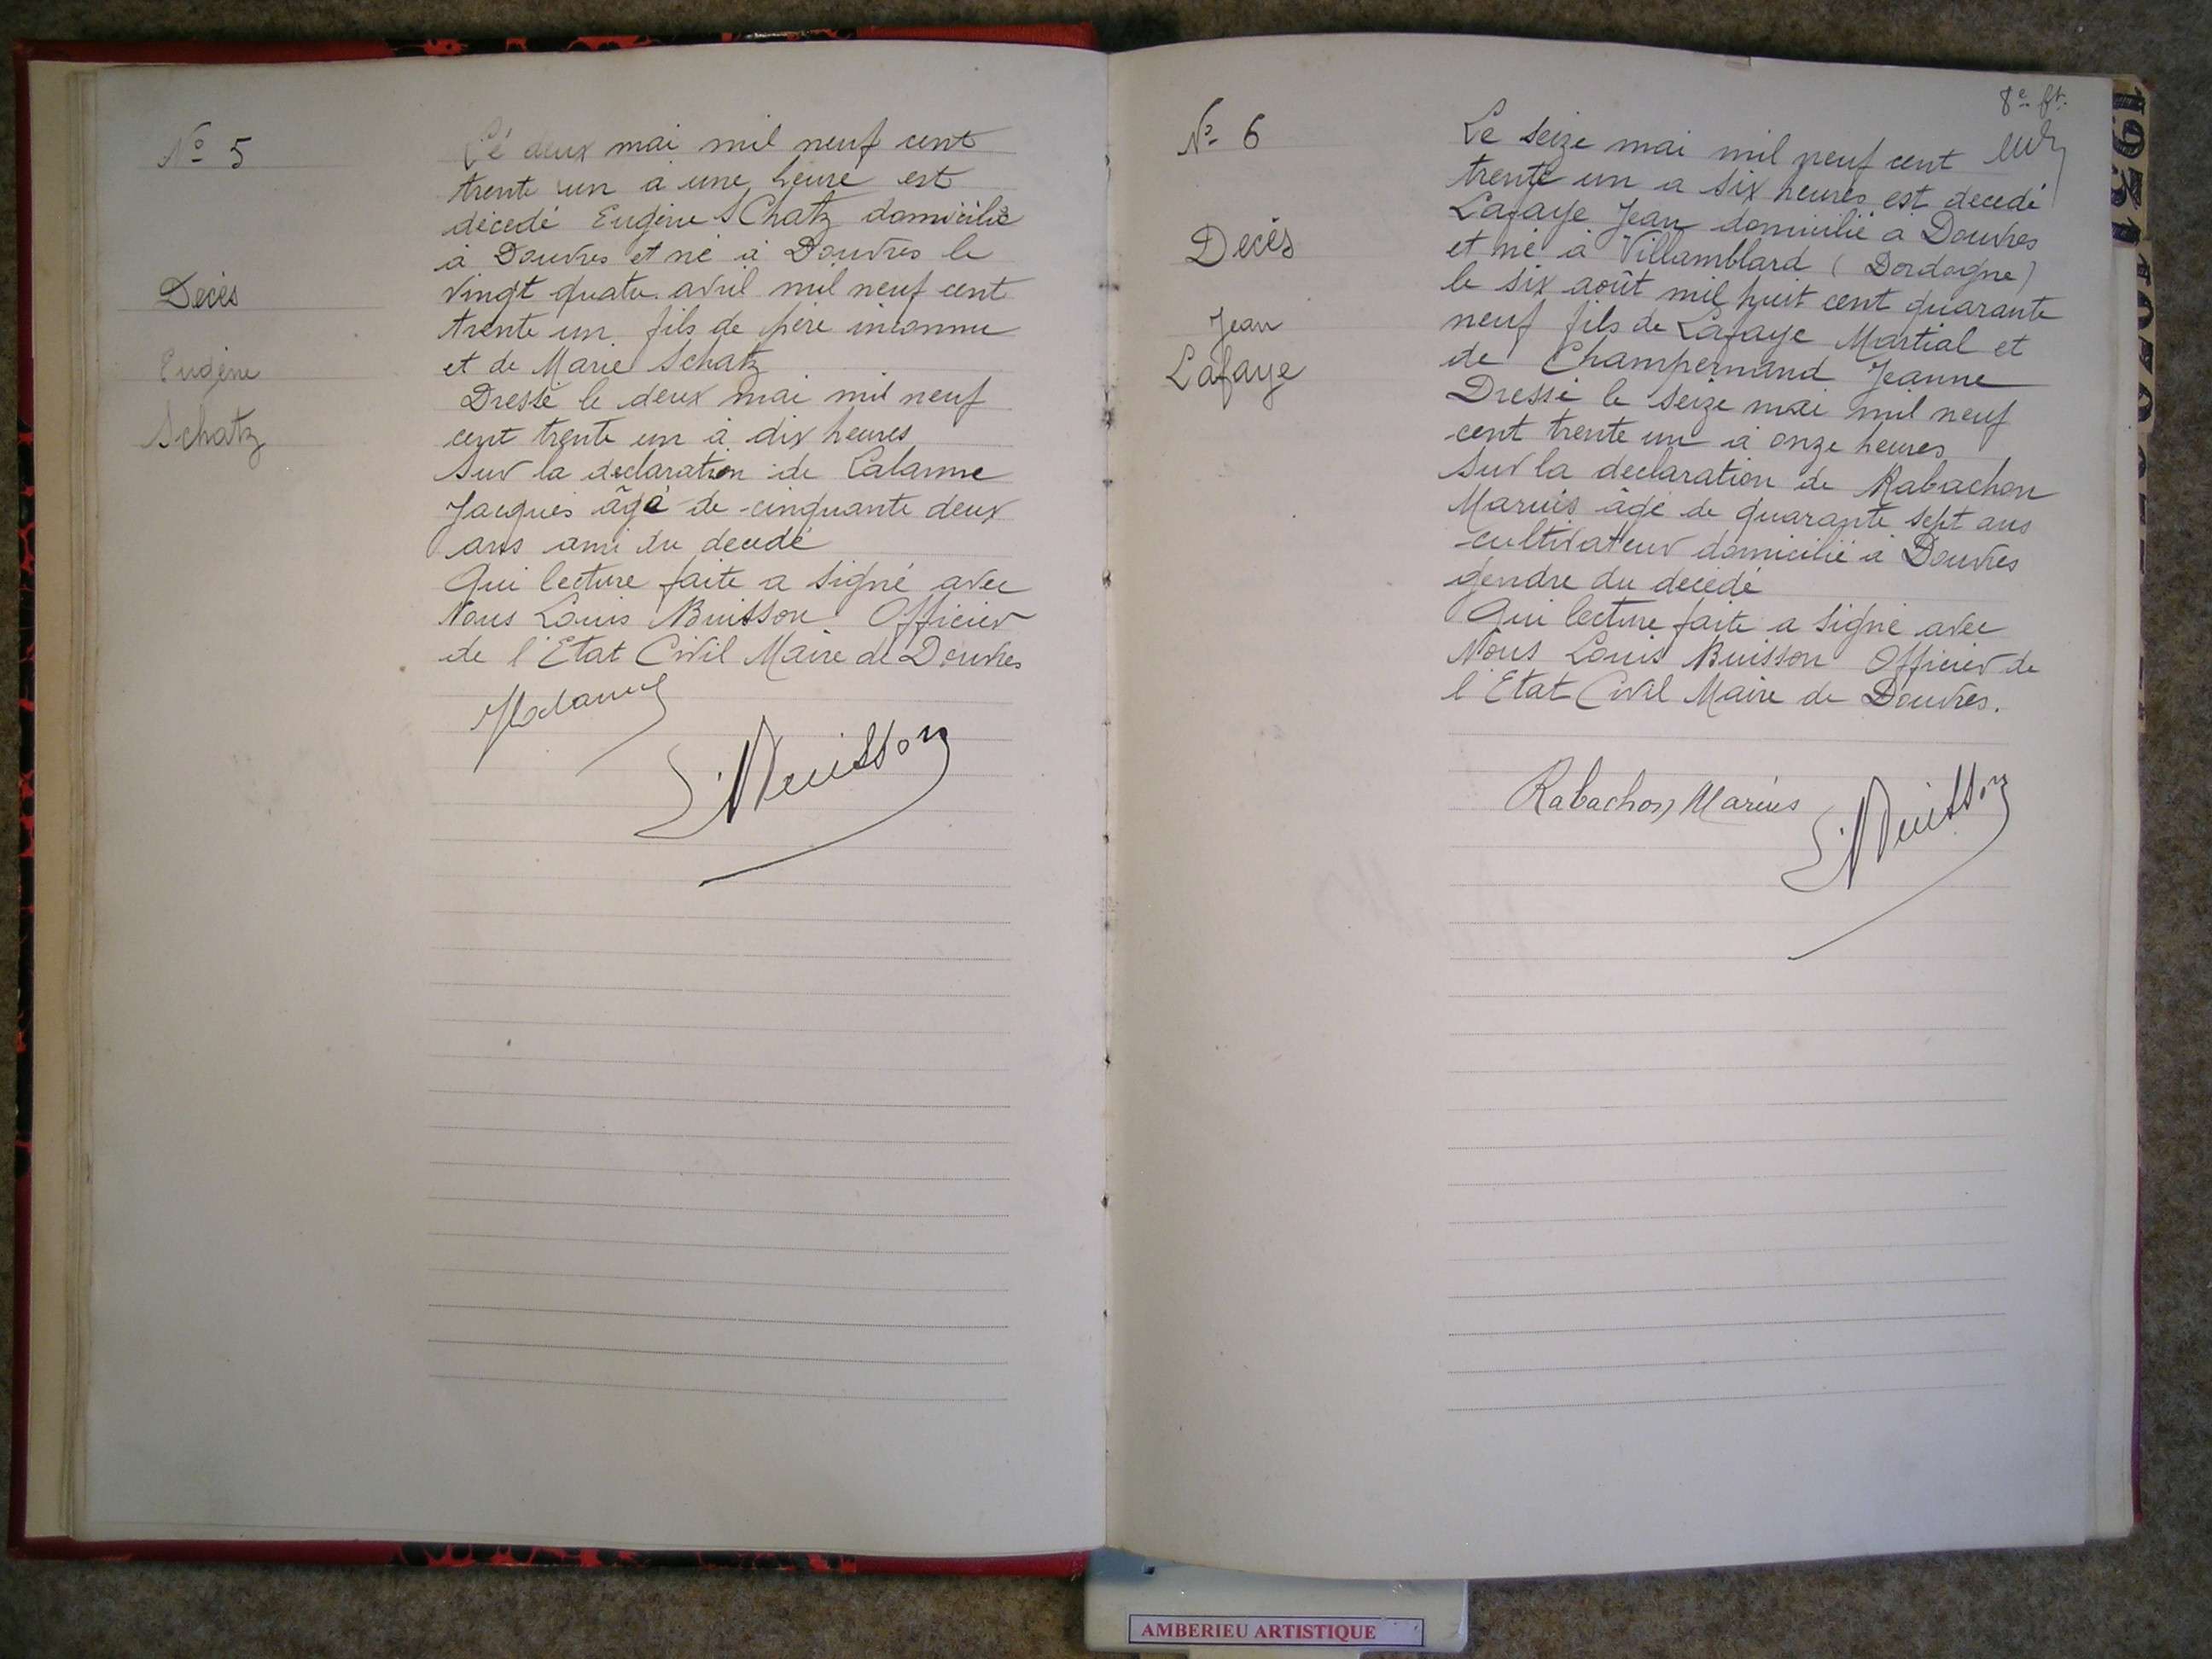 N° 5
Décès
Eugène
Schatz
Le deux mai mil neuf cent
trente un à une heure est
décédé Eugène SChatz domicilié
à Douvres et né à Douvres le
vingt quatre avril mil neuf cent
trente un fils de père inconnu
et de Marie Schatz
Dressé le deux mai mil neuf
cent trente un à dix heures
Sur la declaration de Lalanne
Jacques âgé de cinquante deux
ans ami du decedé
Qui lecture faite a signé avec
Nous Louis Buisson Officier
de l'Etat Civil Maire de Douvres
L. Buisson
8e ft.
N° 6
Decès
Jean
Lafaye
Le seize mai mil neuf cent
trente un a six heures est decedé
Lafaye Jean domicilié a Douvres
et né à Villamblard (Dordogne)
le six août mil huit cent quarante
neuf fils de Lafaye Martial et
de Champernaud Jeanne
Dressé le seize mai mil neuf
cent trente un à onze heures
Sur la declaration de Rabachon
Marius âgé de quarante sept ans
cultivateur domicilié à Douvres
gendre du decédé
Qui lecture faite a signé avec
Nous Louis Buisson Officier de
l'Etat Civil Maire de Douvres.
Rabachon Marius
L. Buisson
1931
AMBERIEU ARTISTIQUE